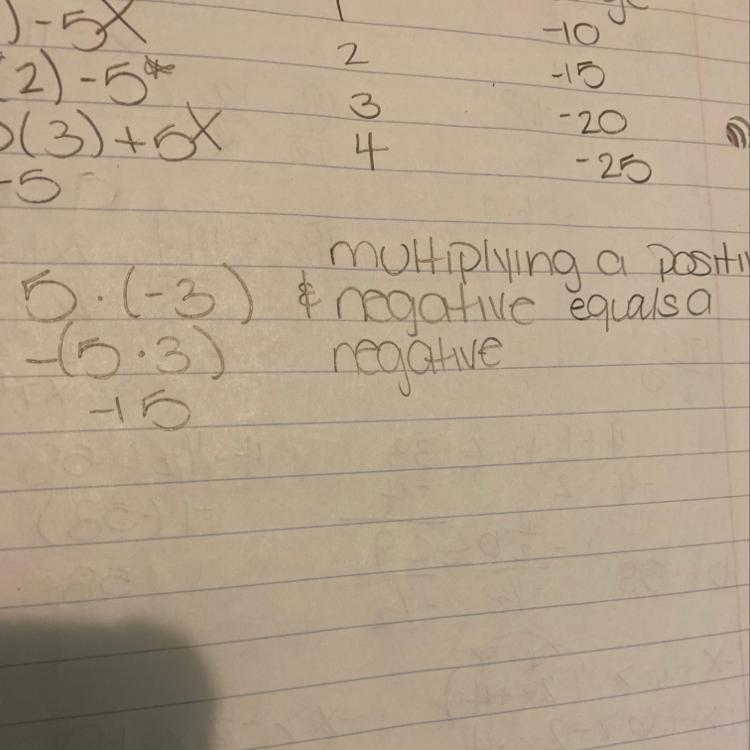 ) -5X 1 -10
2) -5 2 -15
(3) +5X 3 -20
-5 4 -25
multiplying a positiv
5 · (-3) & negative equals a
-(5 · 3) negative
-15